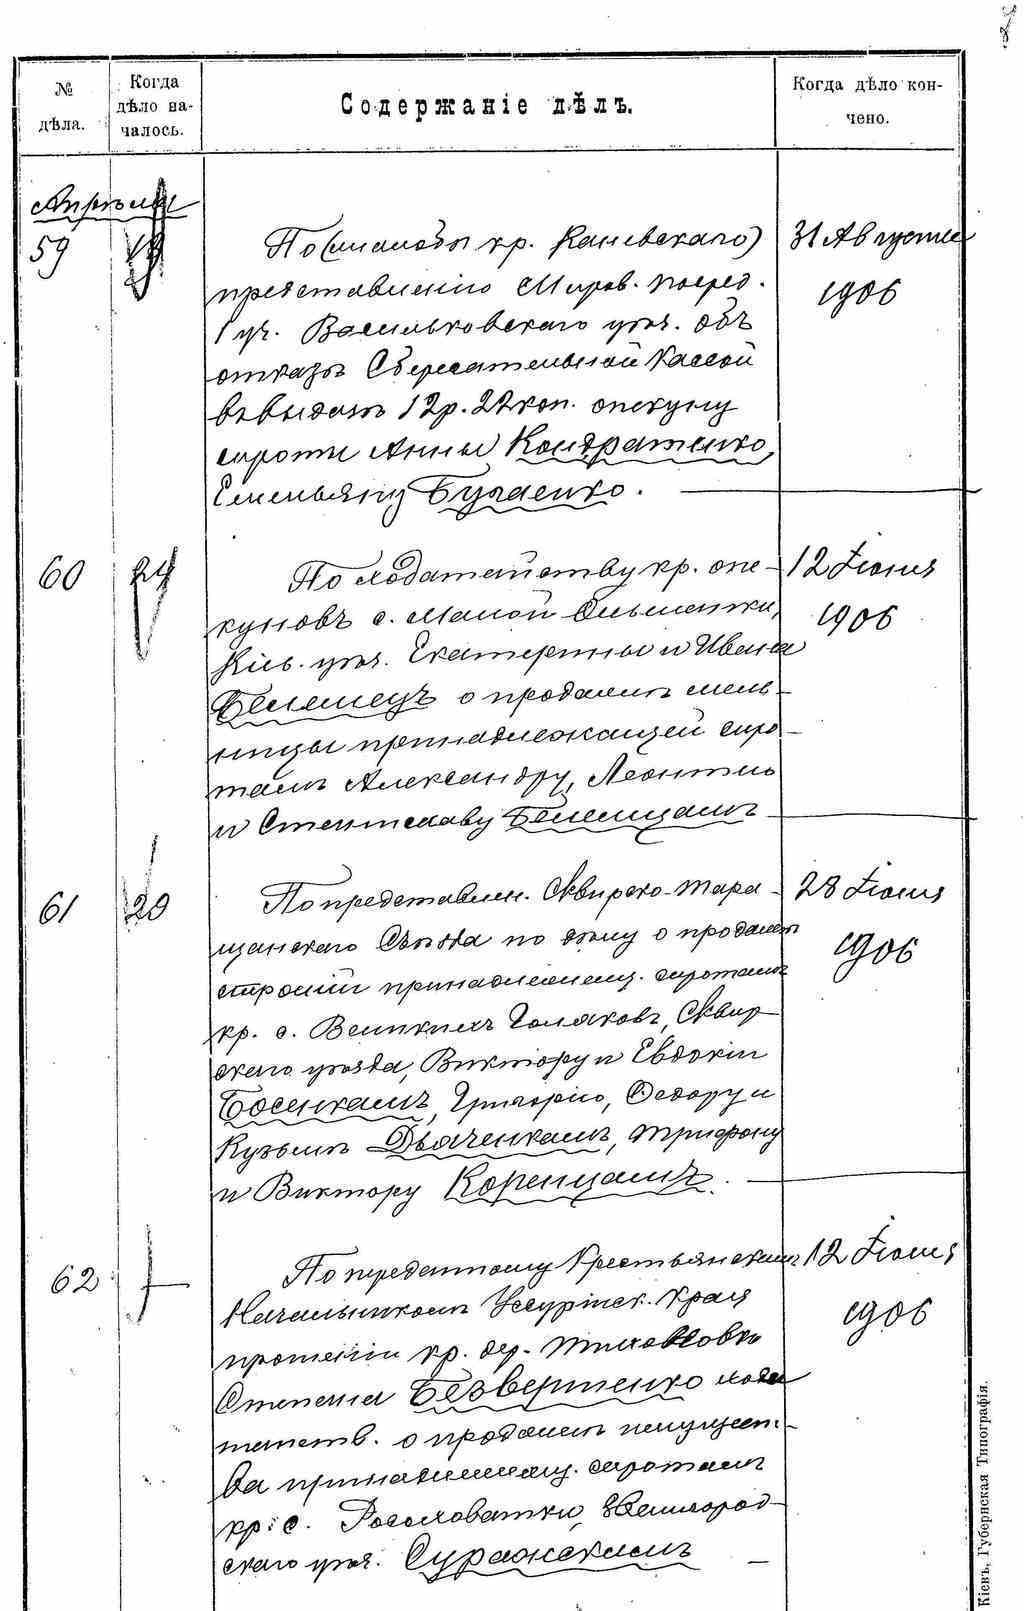 №
дѣла.
Когда
дѣло на-
чалось.
Содержаніе дѣлъ.
Когда дѣло кон-
чено.
Апрѣля
59
19
По (жалобѣ кр. Каневскаго)
представленію Миров. Посред.
1 уч. Васильковскаго уѣз. объ
отказѣ Сберегательной Кассой
въ выдачѣ 12 р. 22 коп. опекуну
сироты Анны Кондратенко,
Емельяну Бугаенко.
31 Августа
1906
60
24
По ходатайству кр. опе-
куновъ с. Малой Ольшанки,
Кіев. уѣз. Екатерины и Ивана
Белемецъ о продажѣ мель-
ницы принадлежащей сиро-
тамъ Александру, Леонтію
и Станиславу Белемцамъ
12 Іюня
1906
61
20
По представлен. Сквирско-Тара-
щанскаго Съѣзда по дѣлу о продажѣ
строеній принадлежащ. сиротамъ
кр. с. Великихъ Голяковъ, Сквир-
скаго уѣзда, Виктору и Евдокіи
Босенкамъ, Григорію, Ѳедору и
Кузьмѣ Дьяченкамъ, Трифону
и Виктору Коренцамъ.
28 Іюня
1906
62
По переданному Крестьянскимъ
Начальникомъ Уссурійск. края
прошенію кр. дер. Тиховодовки
Степана Безвершенко хода
тайств. о продажѣ имущест-
ва принадлежащ. сиротамъ
кр. с. Росоховатки, Звенигород-
скаго уѣз. Суражскимъ
12 Іюня
1906
Кіевъ, Губернская Типографія.